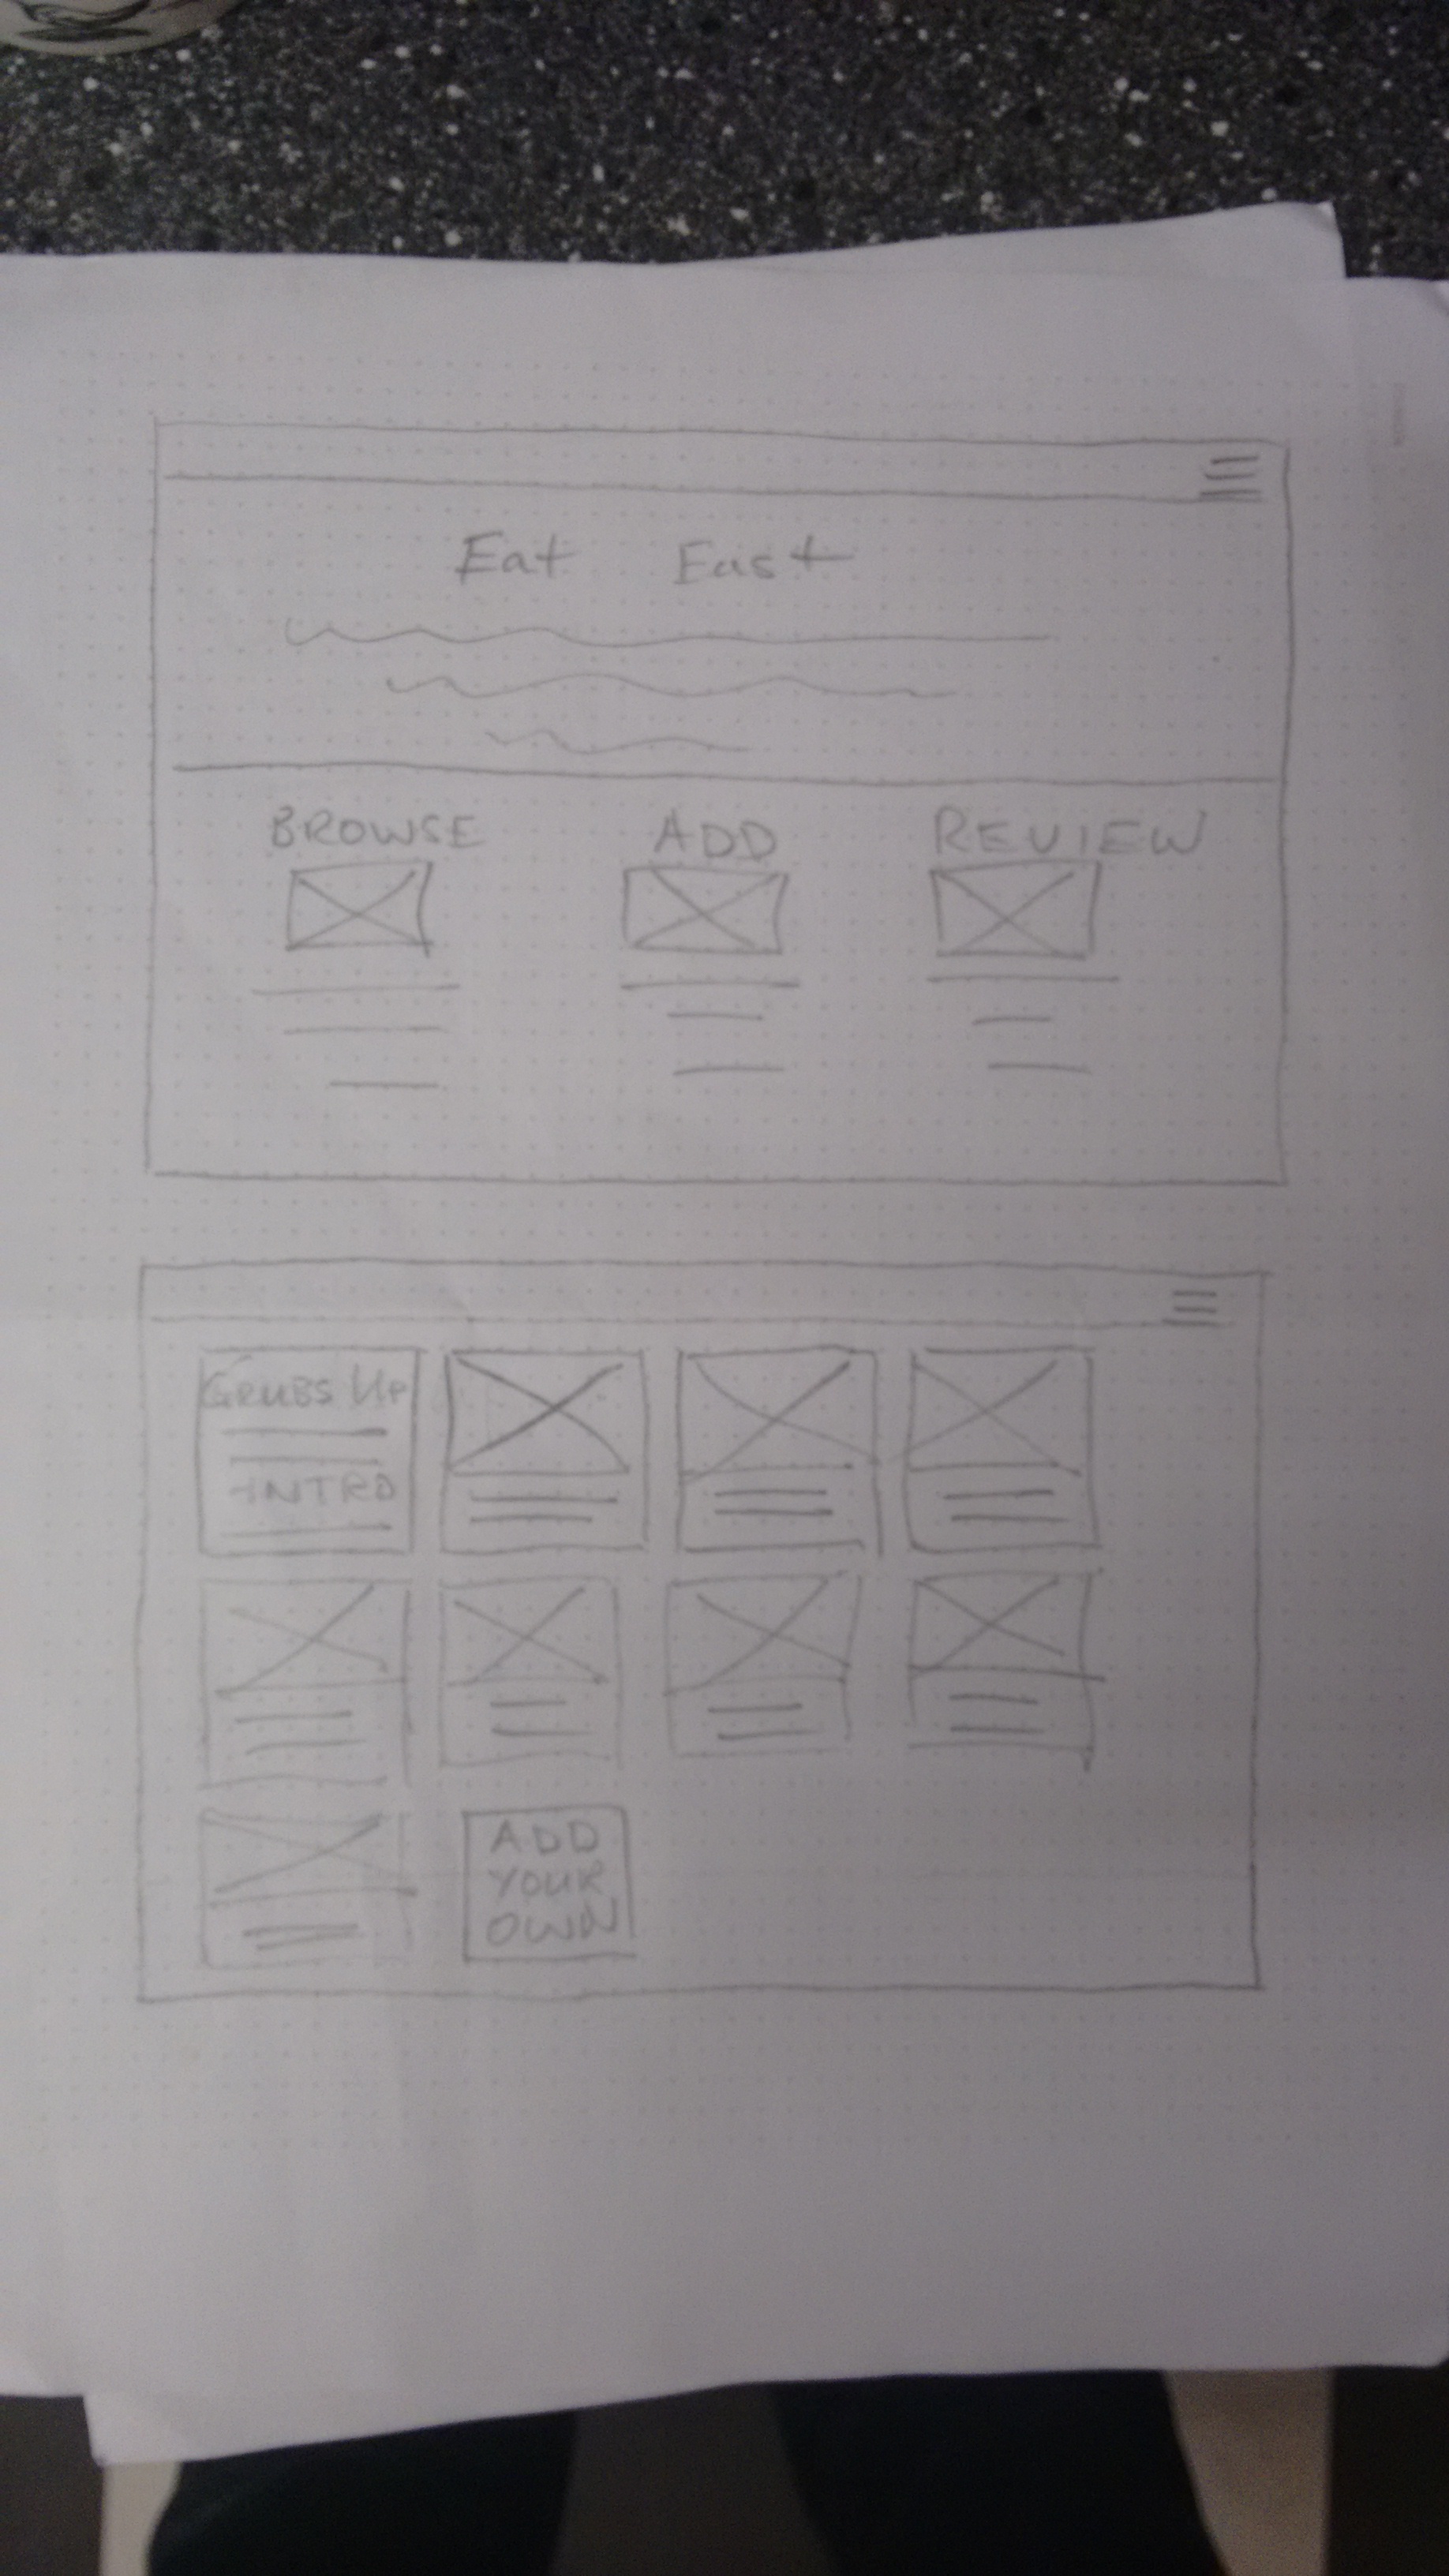 Eat East
BROWSE ADD REVIEW
GRUBS UP
INTRO
ADD
YOUR
OWN